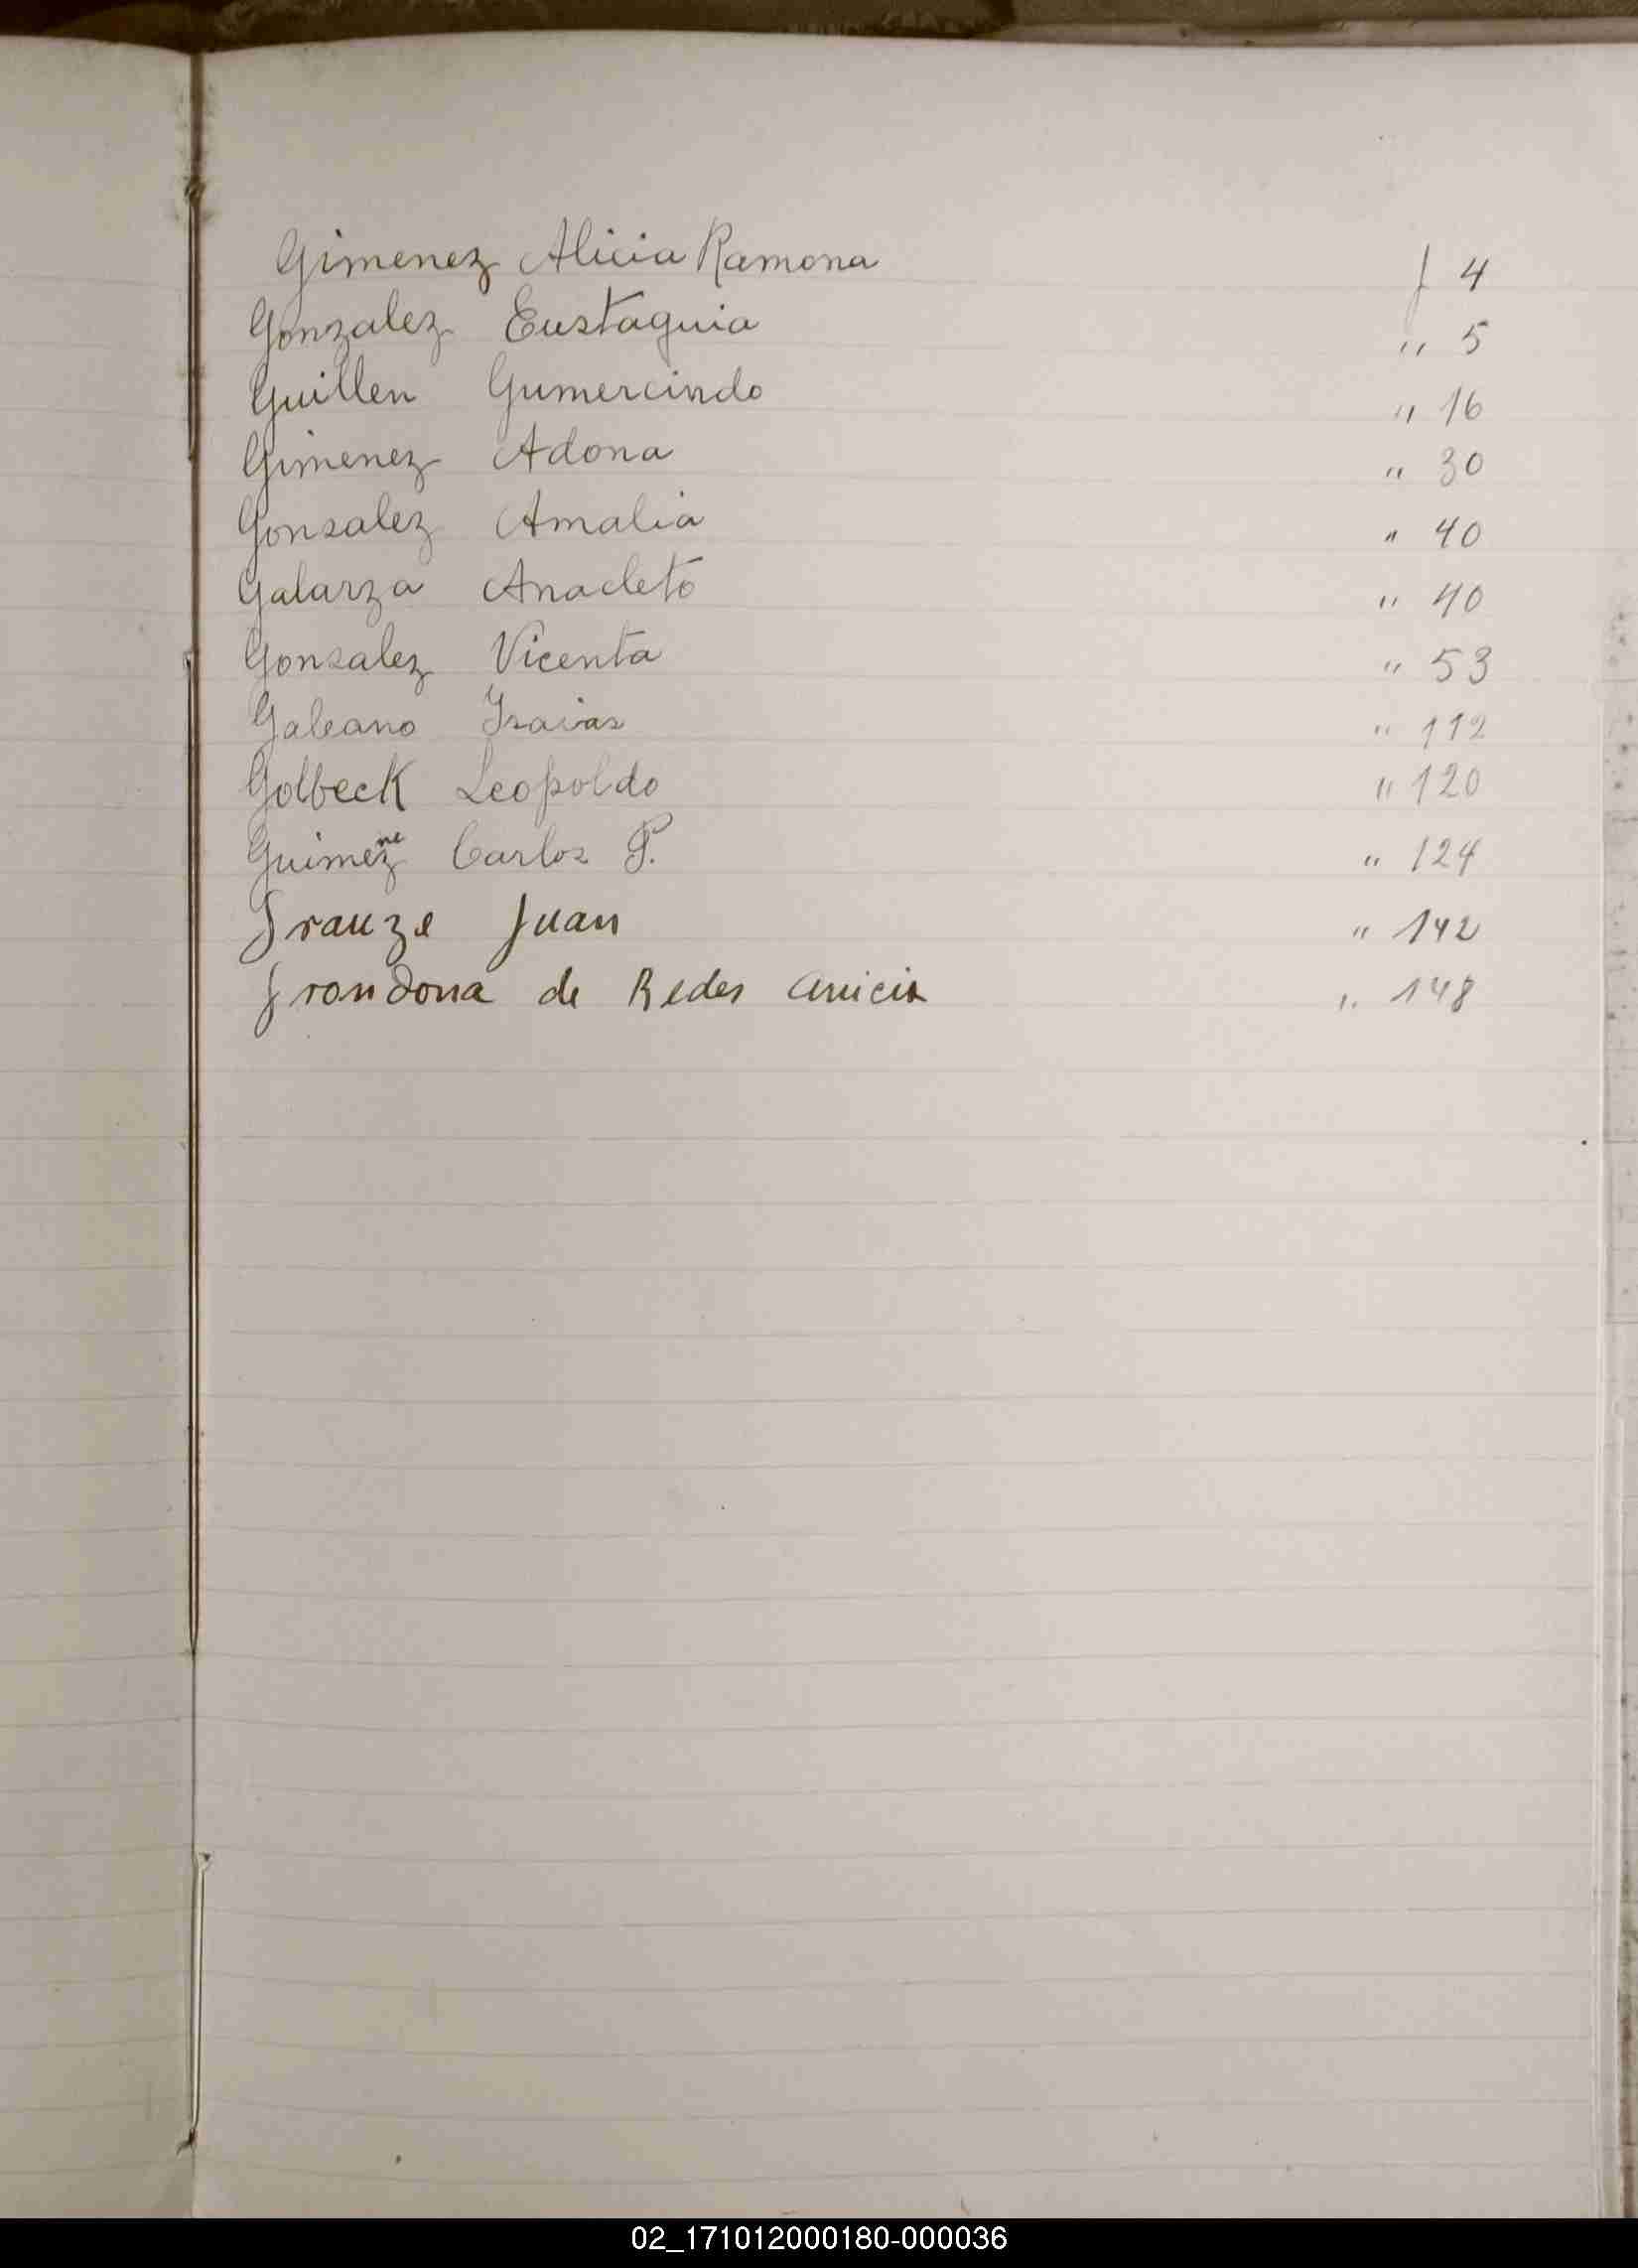 Gimenez Alicia Ramona f 4
Gonzalez Eustaquia " 5
Guillen Gumercindo " 16
Gimenez Adona " 30
Gonzalez Amalia " 40
Galarza Anacleto " 40
Gonzalez Vicenta " 53
Galeano Isaias " 112
Golbeck Leopoldo " 120
Guimenez Carlos P. " 124
Grauze Juan " 142
Grondona de Redes Anicia " 148
02_171012000180-000036